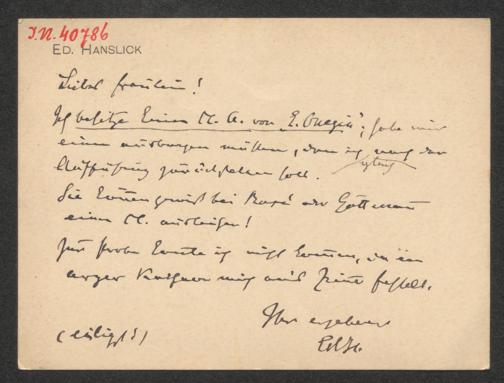 I.N. 40786
ED. HANSLICK
Liebes Fräulein!
Ich besitze keinen Kl. A. von „E. Onegin“; habe mir
einen ausborgen müssen, den ich nach der
gleich
Aufführung zurückstellen soll.
Sie können gewiß bei oder Gutmann
einen Kl. ausleihen!
Zur Probe konnte ich nicht kommen, da ein
arger Katarrh mich ans Zimmer fesselt.
Ihr ergebener
EdH.
(eiligst!)